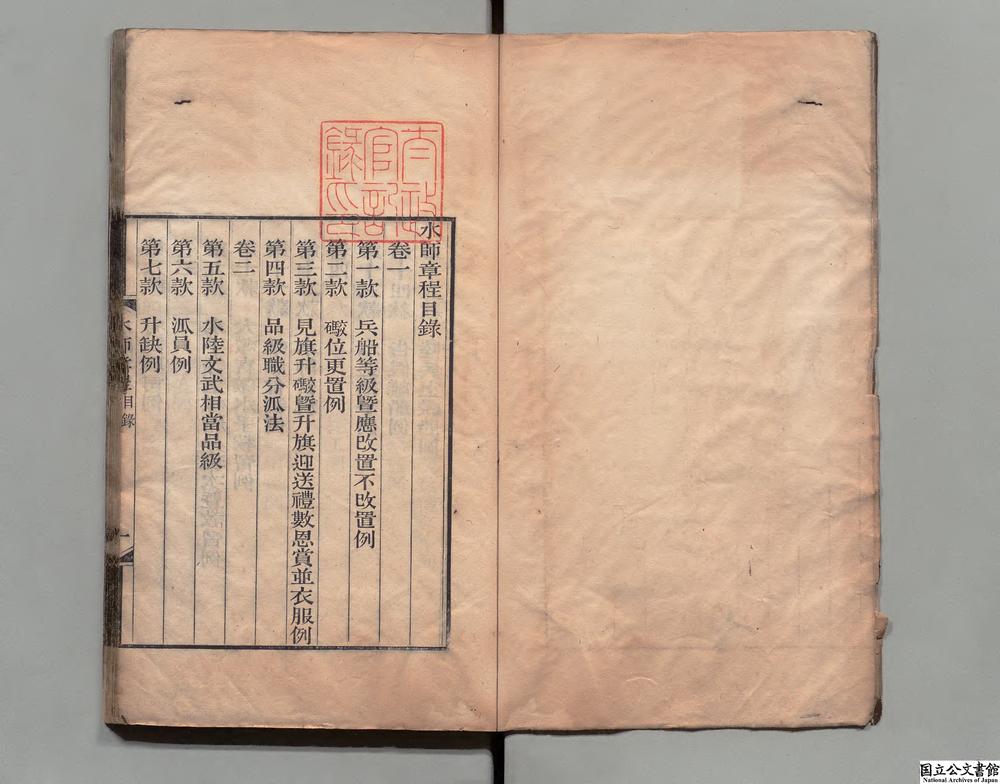 水師章程目錄
卷一
第一款　兵船等級暨應改置不改置例
第二款　礮位更置例
第三款　見旗升礮暨升旗迎送禮數恩賞並衣服例
第四款　品級職分泒法
卷二
第五款　水陸文武相當品級
第六款　泒員例
第七款　升缺例
水師章程目錄
一
国立公文書館
National Archives of Japan